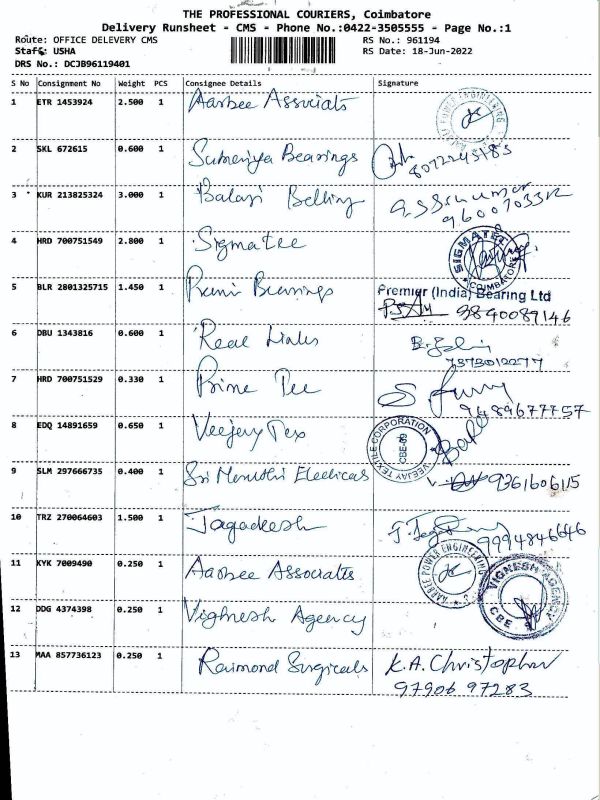 THE PROFESSIONAL COURIERS, Coimbatore
Delivery Runsheet - CMS - Phone No.:0422-3505555 - Page No.:1
Route: OFFICE DELEVERY CMS RS No.: 961194
Staff: USHA RS Date: 18-Jun-2022
DRS No.: DCJB96119401
S No Consignment No Weight PCS Consignee Details Signature
1 ETR 1453924 2.500 1 Aarbee Associats
2 SKL 672615 0.600 1 Sumeriya Bearings
8072245183
3 KUR 213825324 3.000 1 Balaji Belting
4 HRD 700751549 2.800 1 Sigmatee SIGMATEE COIMBATORE
5 BLR 2801325715 1.450 1 Bearings Premier (India) Bearing Ltd
9840089146
6 DBU 1343816 0.600 1 Real Links
7373012277
7 HRD 700751529 0.330 1 Prime Tee
9489677757
8 EDQ 14891659 0.650 1 Veejay Tex VEEJAY TEXTILE CORPORATION CBE-09
9 SLM 297666735 0.400 1 Sri Maruthi Electicals 9361606115
10 TRZ 270064603 1.500 1 Jagadeesh
9994846646
11 KYK 7009490 0.250 1 Aarbee Associates POWER ENGINEERING
12 DDG 4374398 0.250 1 Vighnesh Agency VIGNESH AGENCY CBE
13 MAA 857736123 0.250 1 Raimond Surgicals K.A. Christopher
97906 97283